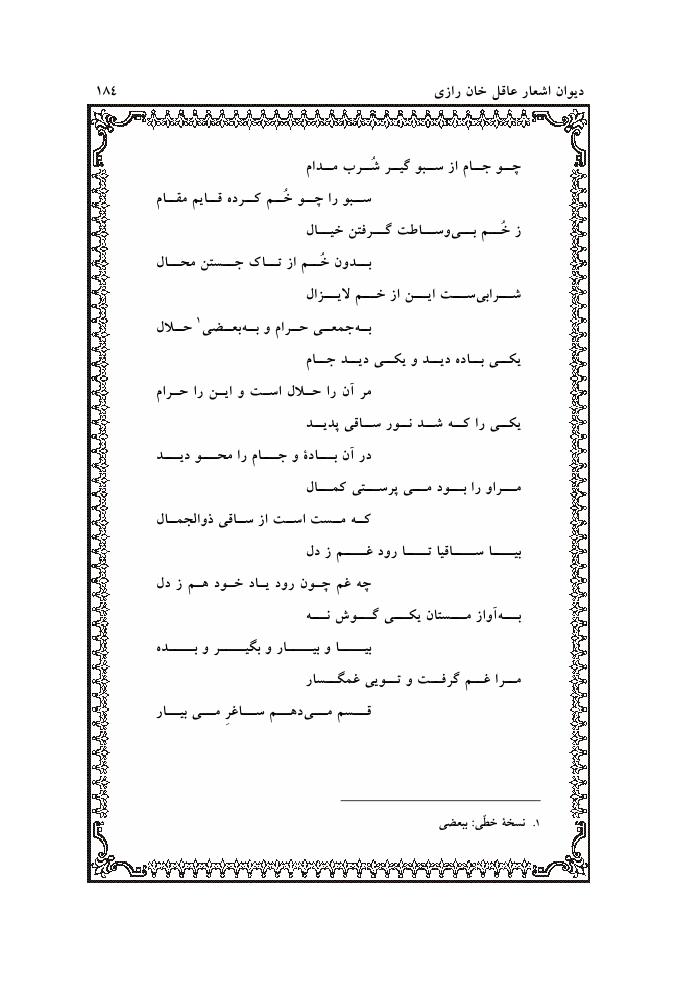 دیوان اشعار عاقل خان رازی ۱۸٤
چو جام از سبو گیر شُرب مدام
سبو را چو خُم کرده قایم مقام
ز خُم بی‌وساطت گرفتن خیال
بدون خُم از تاک جستن محال
شرابی‌ست این از خم لایزال
به‌جمعی حرام و به‌بعضی۱ حلال
یکی باده دید و یکی دید جام
مر آن را حلال است و این را حرام
یکی را که شد نور ساقی پدید
در آن بادۀ و جام را محو دید
مراو را بود می پرستی کمال
که مست است از ساقی ذوالجمال
بیا ساقیا تا رود غم ز دل
چه غم چون رود یاد خود هم ز دل
به‌آواز مستان یکی گوش نه
بیا و بیار و بگیر و بده
مرا غم گرفت و تویی غمگسار
قسم می‌دهم ساغرِ می بیار
۱. نسخۀ خطّی: ببعضی